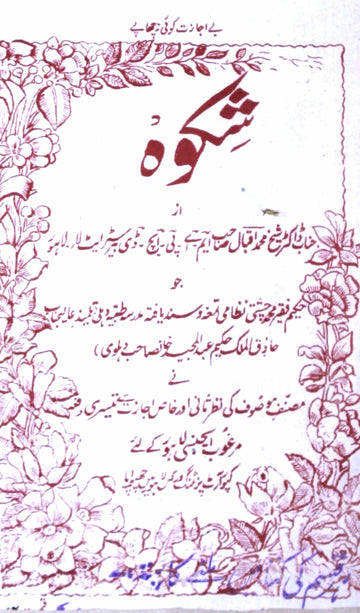 بے اجازت کوئی نہ چھاپے
شِکوَہ
از
جناب ڈاکٹر شیخ محمد اقبال صاحب ایم۔ اے۔ پی۔ ایچ۔ ڈی بیرسٹر ایٹ لا۔ لاہو
جو
حکیم فقیر محمد چشتی نظامی تمغہ و سند یافتہ مدرسہ طبیہ دہلی تلمیذ عالیجناب
حاذق الملک حکیم عبدالمجید خانصاحب دہلوی)
نے
مصنف موصوف کی نظر ثانی اور خاص اجازت سے تیسری دفعہ
مرغوب ایجنسی لاہور کے لئے
آرٹ پرنٹنگ ورکس میں چھپوایا
قسم کی